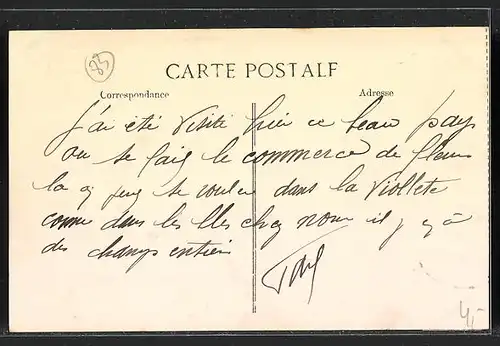 83
CARTE POSTALE
Correspondance
Adresse
J'ai été visité hier ce beau pays
ou se fait le commerce de fleurs
la on peux se rouler dans la viollete
comme dans les blés chez nous il y a
des champs entiers
4,-